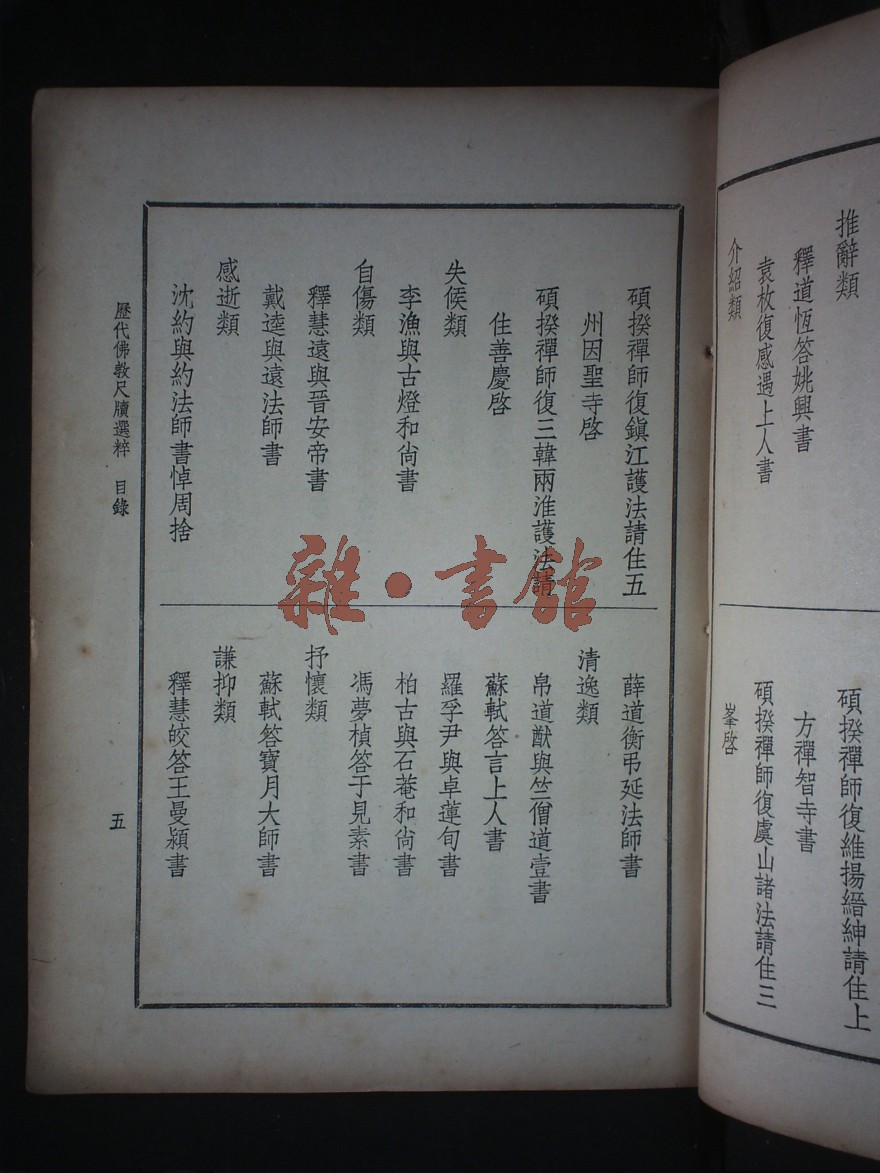 推辭類
釋道恆答姚興書
袁枚復感遇上人書
介紹類
碩揆禪師復維揚縉紳請住上
方禪智寺書
碩揆禪師復虞山諸法請住三
峯啓
碩揆禪師復鎮江護法請住五
州因聖寺啓
碩揆禪師復三韓兩淮護法請
住善慶啓
失候類
李漁與古燈和尙書
自傷類
釋慧遠與晉安帝書
戴逵與遠法師書
感逝類
沈約與約法師書悼周捨
薛道衡弔延法師書
清逸類
帛道猷與竺僧道壹書
蘇軾答言上人書
羅孚尹與卓蓮旬書
柏古與石菴和尙書
馮夢楨答于見素書
抒懷類
蘇軾答寶月大師書
謙抑類
釋慧皎答王曼穎書
歷代佛教尺牘選粹 目錄
五
雜·書館